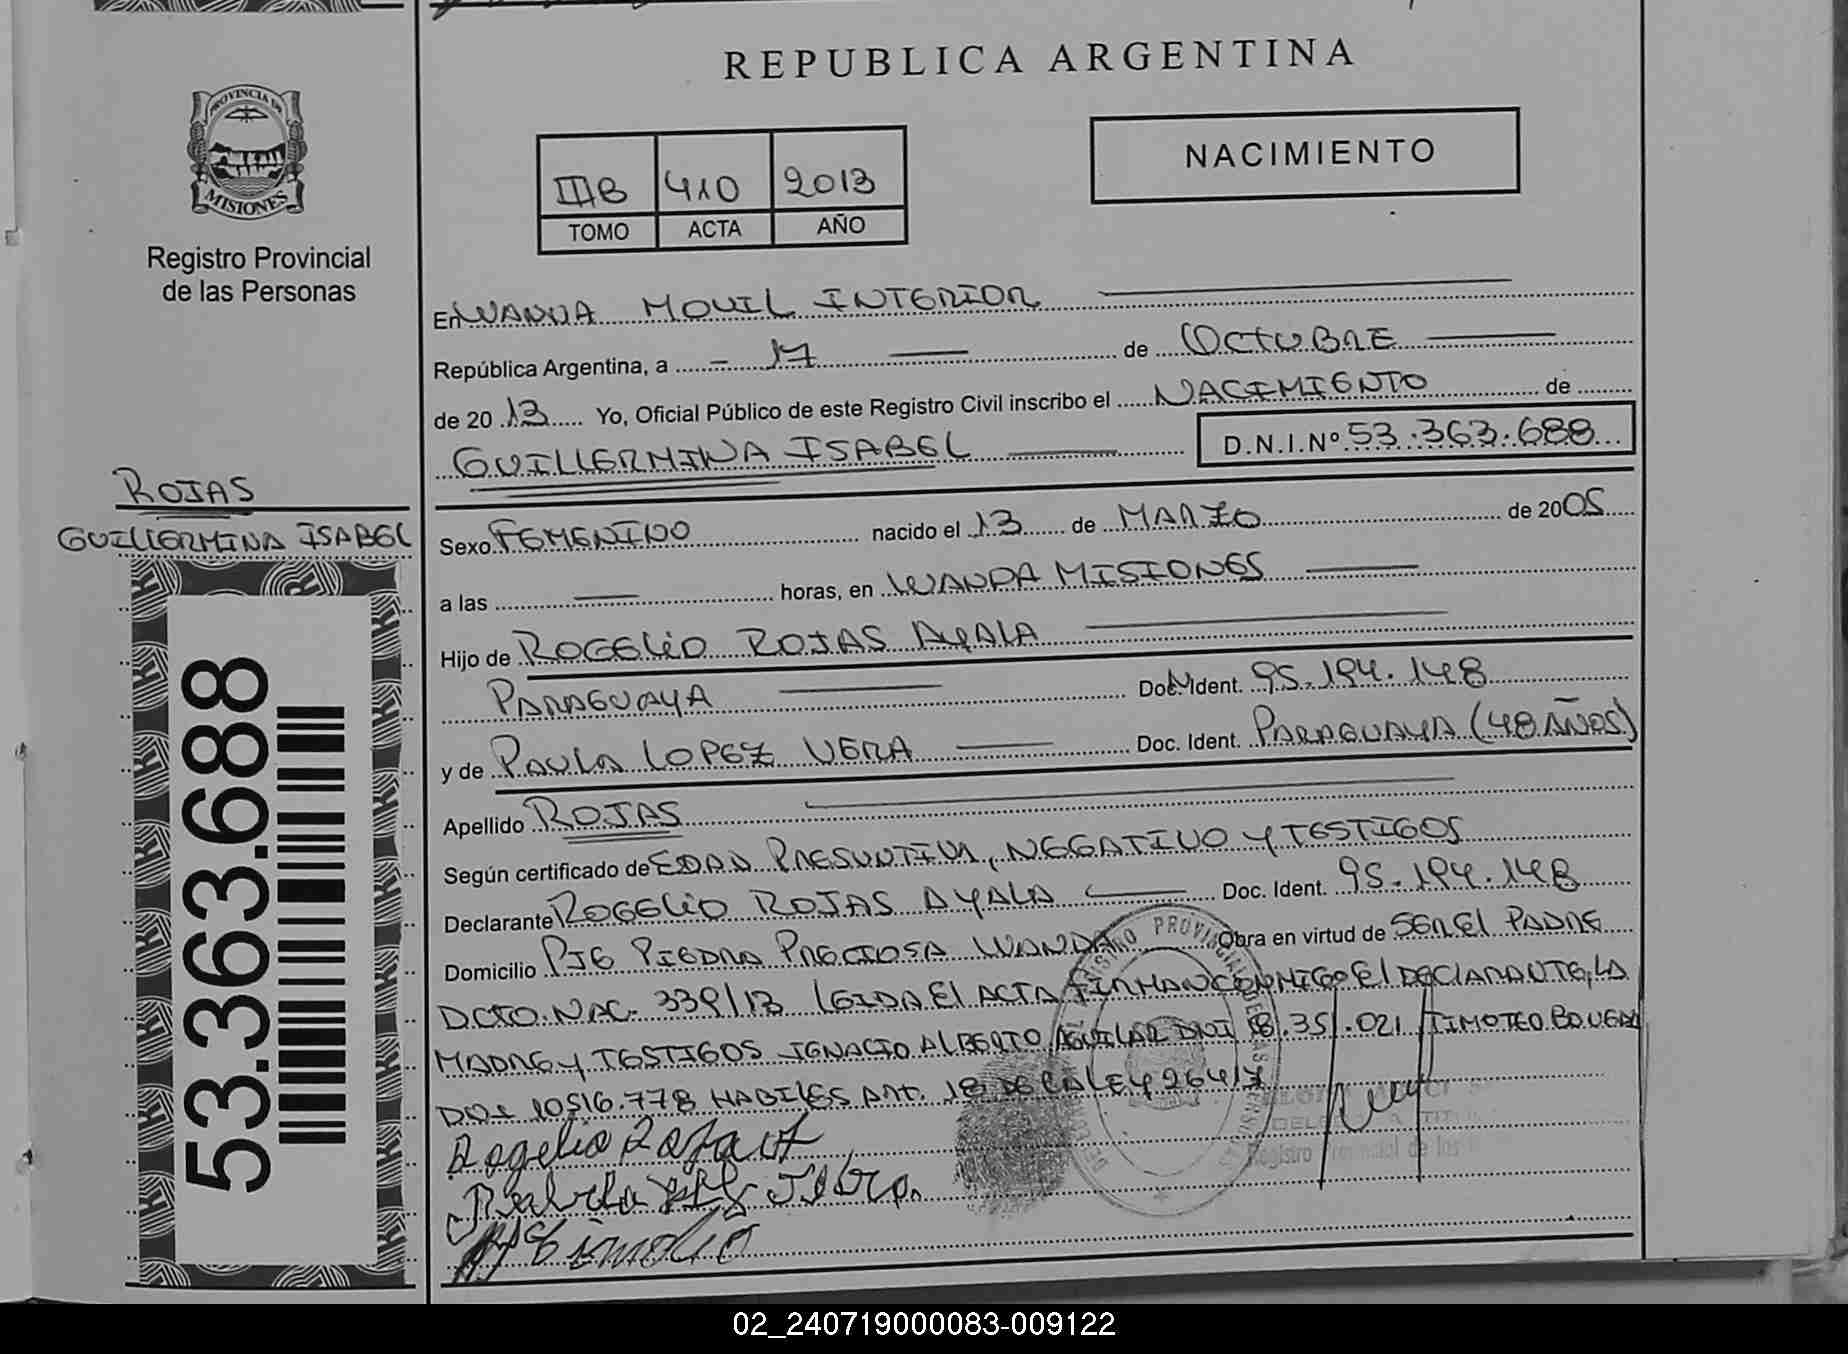 REPUBLICA ARGENTINA
PROVINCIA DE
MISIONES
Registro Provincial
de las Personas
NACIMIENTO
IIIB 410 2013
TOMO ACTA AÑO
En WANDA MOVIL INTERIOR
República Argentina, a 17 de OCTUBRE
de 2013 Yo, Oficial Público de este Registro Civil inscribo el NACIMIENTO de
GUILLERMINA ISABEL D.N.I.Nº 53.363.688
ROJAS
GUILLERMINA ISABEL
53.363.688
Sexo FEMENINO nacido el 13 de MARZO de 2005
a las horas, en WANDA MISIONES
Hijo de ROGELIO ROJAS AYALA
PARAGUAYA Doc. Ident. 95.194.148
y de PAULA LOPEZ VERA Doc. Ident. PARAGUAYA (48 AÑOS)
Apellido ROJAS
Según certificado de EDAD PRESUNTIVA, NEGATIVO Y TESTIGOS
Declarante ROGELIO ROJAS AYALA Doc. Ident. 95.194.148
Domicilio PJE PIEDRA PRECIOSA WANDA Obra en virtud de SER El PADRE
DCTO. NAC. 339/13 LEIDA El ACTA FIRMAN CONMIGO El DECLARANTE, LA
MADRE Y TESTIGOS IGNACIO ALBERTO AGUILAR DNI 351.021 TIMOTEO
10516.778 HABILES ART. 18 DE LA LEY 26417
Rogelio
02_240719000083-009122